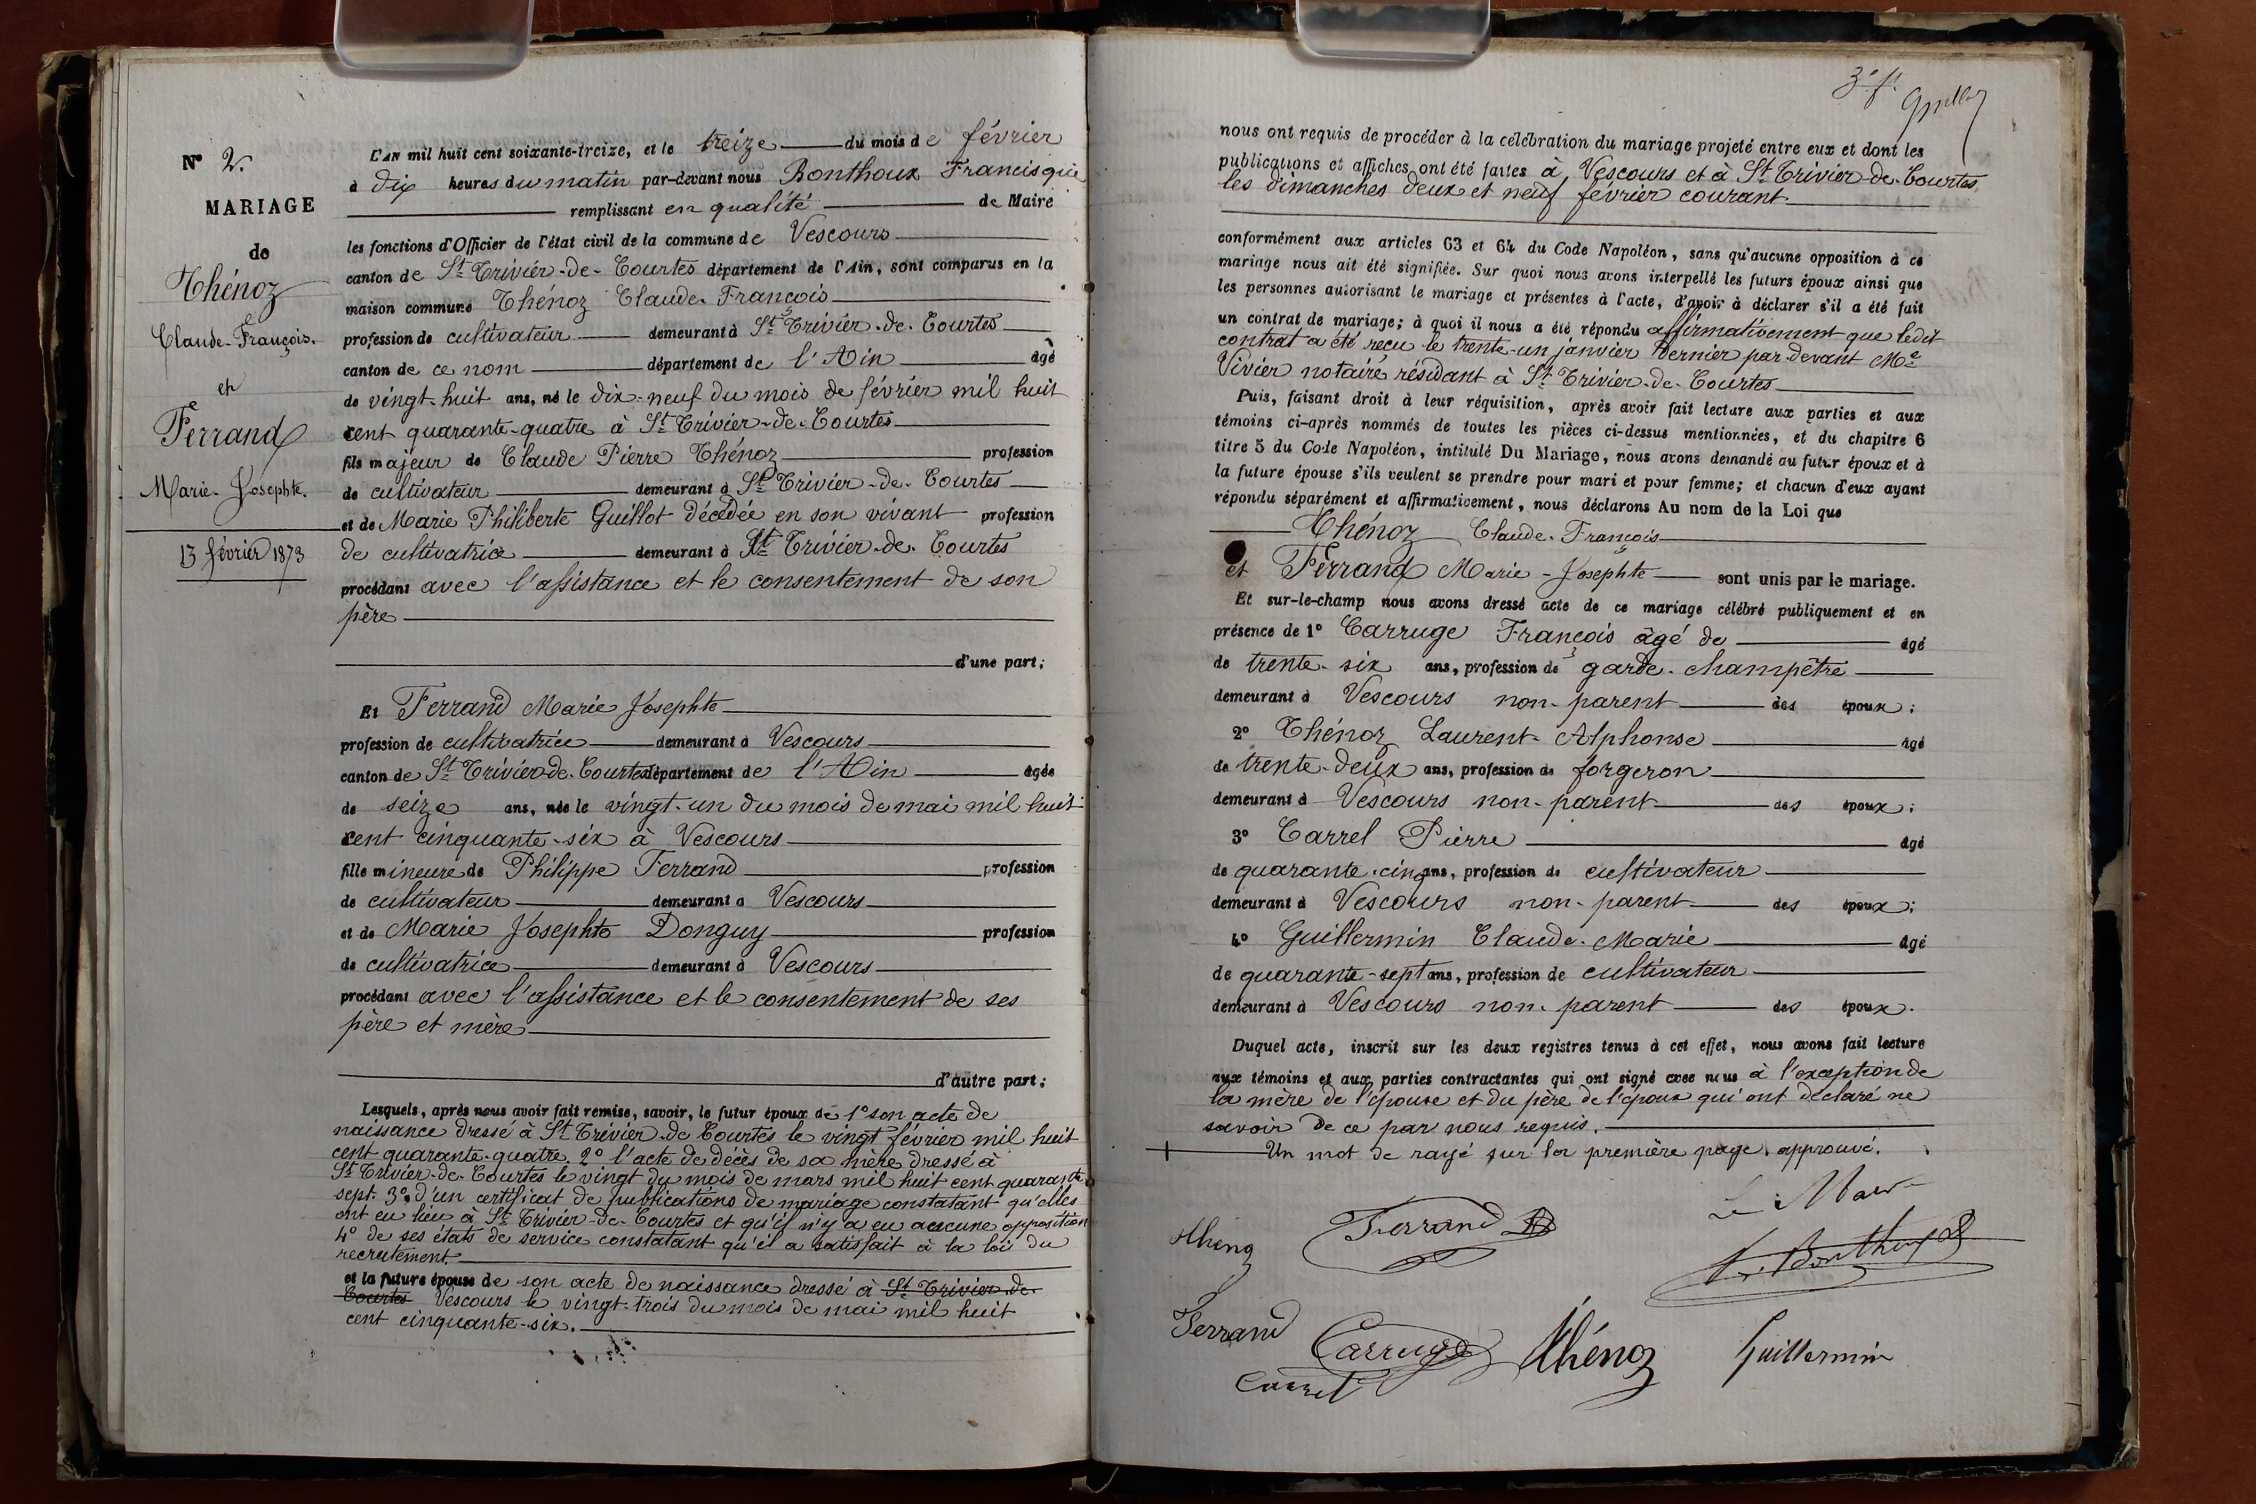 N° 2.
MARIAGE
de
Thénoz
Claude-François.
et
Ferrand
Marie-Josephte.
13 février 1873
L'AN mil huit cent soixante-treize, et le treize du mois de février
à dix heures du matin par-devant nous Bonthoux Francisque
remplissant en qualité de Maire
les fonctions d'Officier de l'état civil de la commune de Vescours
canton de St Trivier-de-Courtes département de l'Ain, sont comparus en la
maison commune Thénoz Claude-François
profession de cultivateur demeurant à St Trivier-de-Courtes
canton de ce nom département de l'Ain âgé
de vingt-huit ans, né le dix-neuf du mois de février mil huit
cent quarante-quatre à St Trivier-de-Courtes
fils majeur de Claude Pierre Thénoz profession
de cultivateur demeurant à St Trivier-de-Courtes
et de Marie Philiberte Guillot décédée en son vivant profession
de cultivatrice demeurant à St Trivier-de-Courtes
procédant avec l'assistance et le consentement de son
père
d'une part;
Et Ferrand Marie Josephte
profession de cultivatrice demeurant à Vescours
canton de St Trivier-de-Courtes département de l'Ain âgée
de seize ans, née le vingt-un du mois de mai mil huit
cent cinquante-six à Vescours
fille mineure de Philippe Ferrand profession
de cultivateur demeurant à Vescours
et de Marie Josephte Donguy profession
de cultivatrice demeurant à Vescours
procédant avec l'assistance et le consentement de ses
père et mère
d'autre part;
Lesquels, après nous avoir fait remise, savoir, le futur époux de 1° son acte de
naissance dressé à St Trivier-de-Courtes le vingt février mil huit
cent quarante-quatre. 2° l'acte de décès de sa mère dressé à
St Trivier-de-Courtes le vingt du mois de mars mil huit cent quarante
sept. 3° d'un certificat de publications de mariage constatant qu'elles
ont eu lieu à St Trivier-de-Courtes et qu'il n'y a eu aucune opposition
4° de ses états de service constatant qu'il a satisfait à la loi du
recrutement.
et la future épouse de son acte de naissance dressé à St Trivier-de-
Courtes Vescours le vingt-trois du mois de mai mil huit
cent cinquante-six.
3e ft
nous ont requis de procéder à la célébration du mariage projeté entre eux et dont les
publications et affiches ont été faites à Vescours et à St Trivier-de-Courtes
les dimanches deux et neuf février courant
conformément aux articles 63 et 64 du Code Napoléon, sans qu'aucune opposition à ce
mariage nous ait été signifiée. Sur quoi nous avons interpellé les futurs époux ainsi que
les personnes autorisant le mariage et présentes à l'acte, d'avoir à déclarer s'il a été fait
un contrat de mariage; à quoi il nous a été répondu affirmativement que ledit
contrat a été reçu le trente-un janvier dernier par-devant Me
Vivier notaire résidant à St Trivier-de-Courtes
Puis, faisant droit à leur réquisition, après avoir fait lecture aux parties et aux
témoins ci-après nommés de toutes les pièces ci-dessus mentionnées, et du chapitre 6
titre 5 du Code Napoléon, intitulé Du Mariage, nous avons demandé au futur époux et à
la future épouse s'ils veulent se prendre pour mari et pour femme; et chacun d'eux ayant
répondu séparément et affirmativement, nous déclarons Au nom de la Loi que
Thénoz Claude-François
et Ferrand Marie-Josephte sont unis par le mariage.
Et sur-le-champ nous avons dressé acte de ce mariage célébré publiquement et en
présence de 1° Carruge François âgé de âgé
de trente-six ans, profession de garde-champêtre
demeurant à Vescours non-parent des époux;
2° Thénoz Laurent-Alphonse âgé
de trente-deux ans, profession de forgeron
demeurant à Vescours non-parent des époux;
3° Carrel Pierre âgé
de quarante-cinq ans, profession de cultivateur
demeurant à Vescours non-parent des époux;
4° Guillermin Claude-Marie âgé
de quarante-sept ans, profession de cultivateur
demeurant à Vescours non-parent des époux.
Duquel acte, inscrit sur les deux registres tenus à cet effet, nous avons fait lecture
aux témoins et aux parties contractantes qui ont signé avec nous à l'exception de
la mère de l'épouse et du père de l'époux qui ont déclaré ne
savoir de ce par nous requis.
Un mot de rayé sur la première page approuvé.
Le Maire
Thénoz Ferrand
F. Bonthoux
Ferrand Carruge Thénoz Guillermin
Carrel